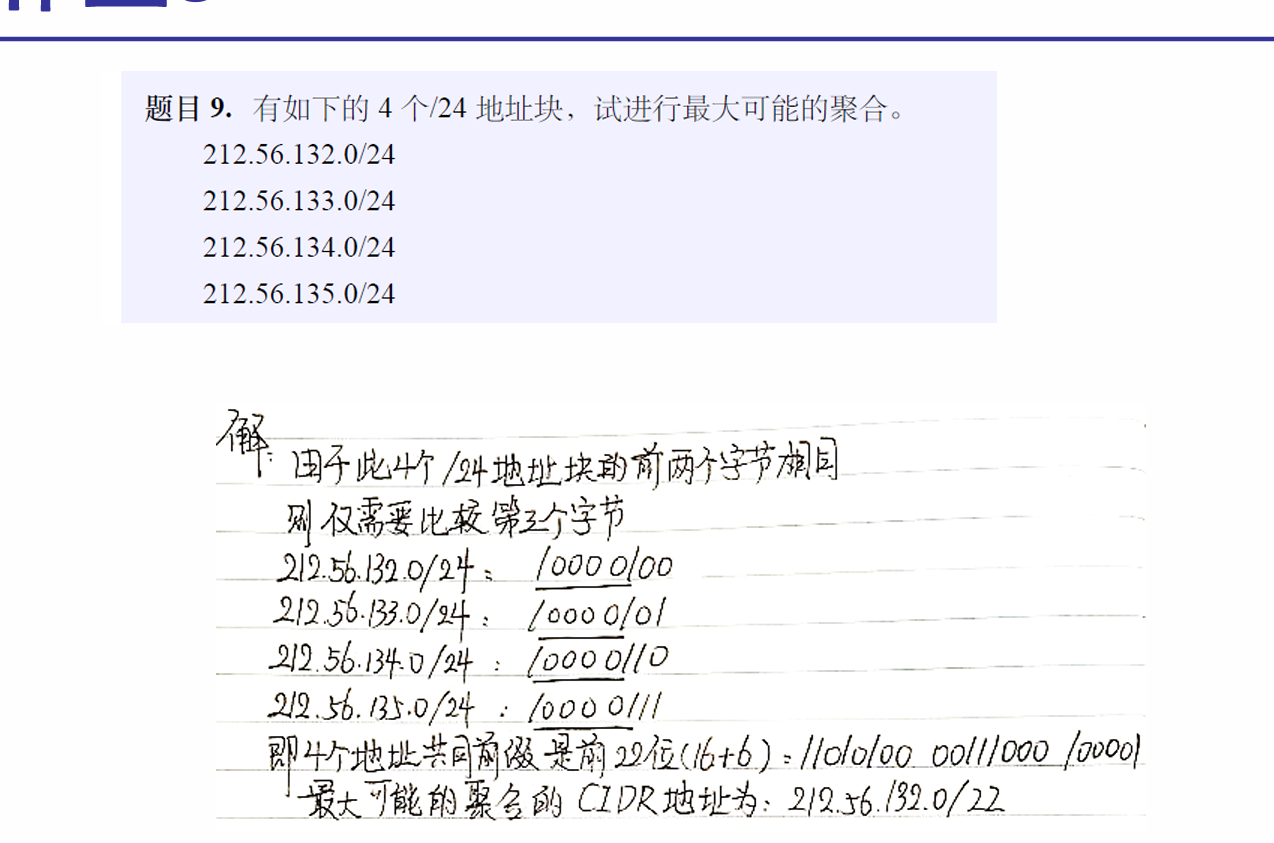 题目 9. 有如下的 4 个/24 地址块，试进行最大可能的聚合。
212.56.132.0/24
212.56.133.0/24
212.56.134.0/24
212.56.135.0/24
解:
由于此4个/24地址块的前两个字节相同
则仅需要比较第三个字节
212.56.132.0/24: 10000100
212.56.133.0/24: 10000101
212.56.134.0/24: 10000110
212.56.135.0/24: 10000111
即4个地址共同前缀是前22位(16+6): 11010100 00111000 100001
最大可能的聚合的CIDR地址为: 212.56.132.0/22